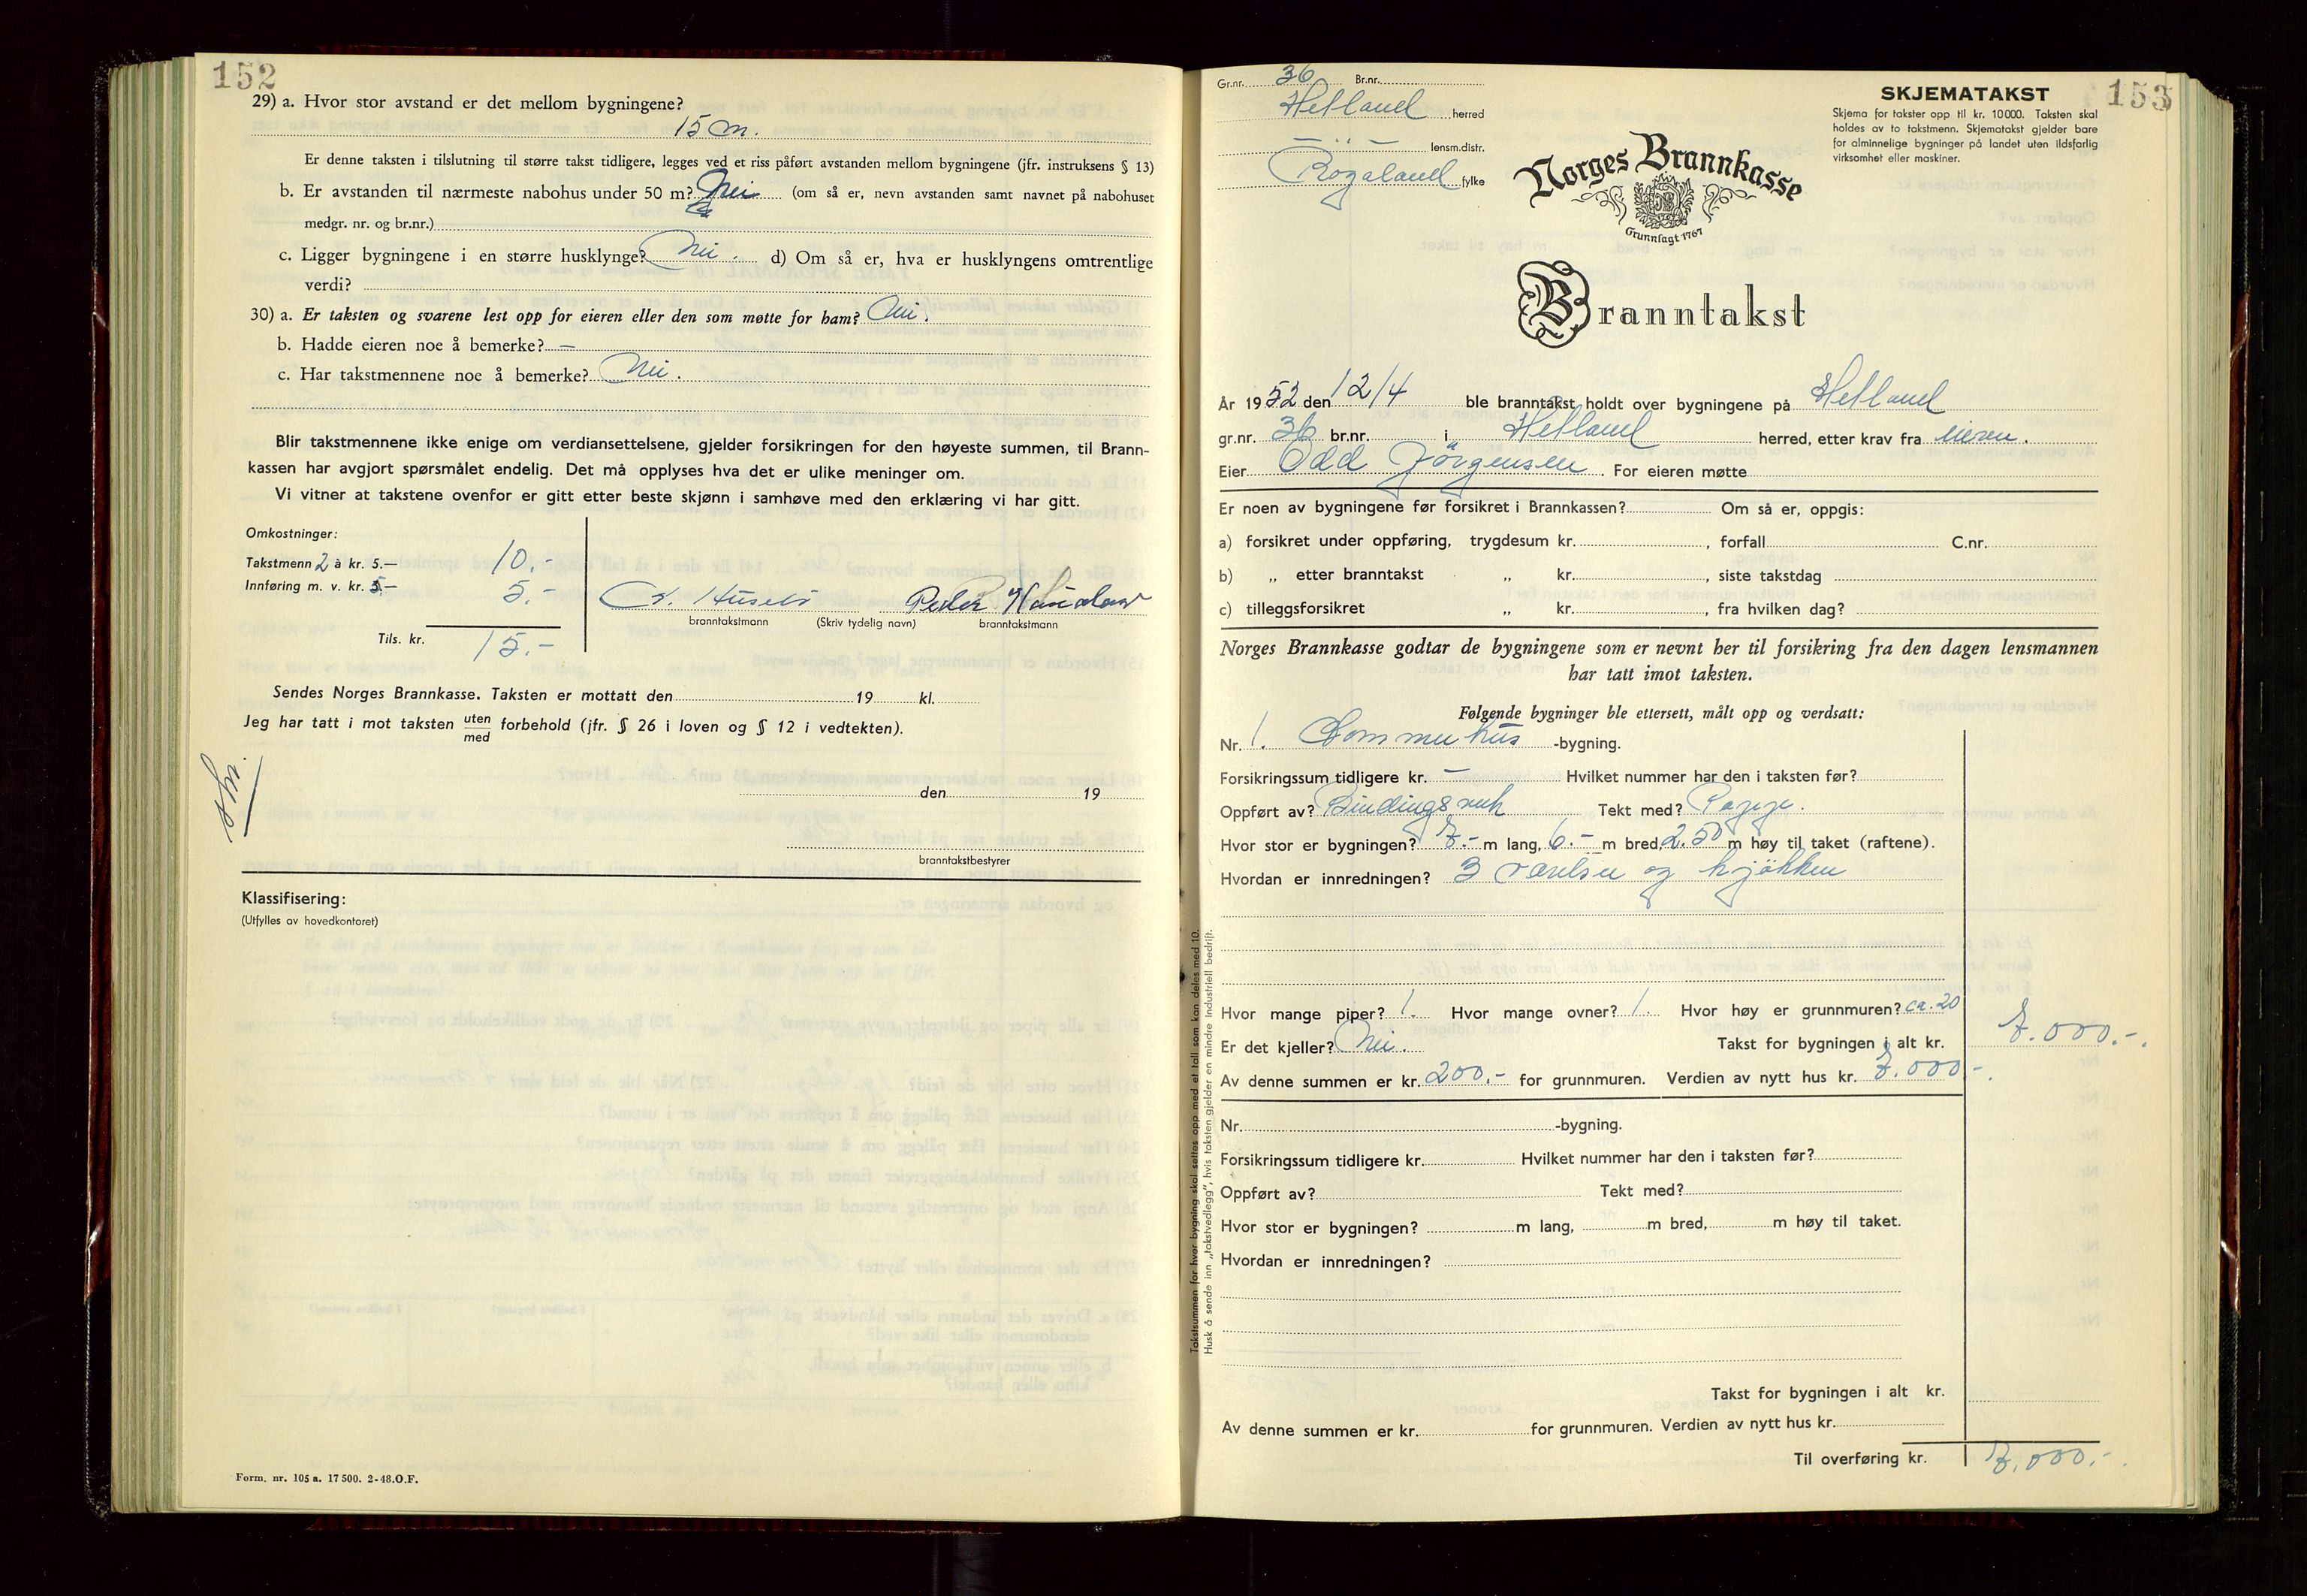 152
29) a. Hvor stor avstand er det mellom bygningene?
15 m.
Er denne taksten i tilslutning til større takst tidligere, legges ved et riss påført avstanden mellom bygningene (jfr. instruksens § 13)
b. Er avstanden til nærmeste nabohus under 50 m? Nei (om så er, nevn avstanden samt navnet på nabohuset
medgr. nr. og br.nr.)
c. Ligger bygningene i en større husklynge? Nei. d) Om så er, hva er husklyngens omtrentlige
verdi?
30) a. Er taksten og svarene lest opp for eieren eller den som møtte for ham? Nei.
b. Hadde eieren noe å bemerke? —
c. Har takstmennene noe å bemerke? Nei.
Blir takstmennene ikke enige om verdiansettelsene, gjelder forsikringen for den høyeste summen, til Brann-
kassen har avgjort spørsmålet endelig. Det må opplyses hva det er ulike meninger om.
Vi vitner at takstene ovenfor er gitt etter beste skjønn i samhøve med den erklæring vi har gitt.
Omkostninger:
Takstmenn 2 à kr. 5.— 10.-
Innføring m. v. kr. 5.— 5.-
Tils. kr. 15.-
Peder
branntakstmann (Skriv tydelig navn) branntakstmann
Sendes Norges Brannkasse. Taksten er mottatt den 19 kl.
Jeg har tatt i mot taksten uten/med forbehold (jfr. § 26 i loven og § 12 i vedtekten).
den 19
branntakstbestyrer
Klassifisering:
(Utfylles av hovedkontoret)
Form. nr. 105 a. 17 500. 2-48.O.F.
153
Gr.nr. 36 Br.nr.
Hetland herred
— " — lensm.distr.
Rogaland fylke
SKJEMATAKST
Skjema for takster opp til kr. 10000. Taksten skal
holdes av to takstmenn. Skjematakst gjelder bare
for alminnelige bygninger på landet uten ildsfarlig
virksomhet eller maskiner.
Norges Brannkasse
Grunnlagt 1767
Branntakst
År 1952 den 12/4 ble branntakst holdt over bygningene på Hetland
gr.nr. 36 br.nr. i Hetland herred, etter krav fra eieren.
Eier Odd Jörgensen. For eieren møtte
Er noen av bygningene før forsikret i Brannkassen? Om så er, oppgis:
a) forsikret under oppføring, trygdesum kr. , forfall C.nr.
b) „ etter branntakst „ kr. , siste takstdag
c) tilleggsforsikret „ kr. , fra hvilken dag?
Norges Brannkasse godtar de bygningene som er nevnt her til forsikring fra den dagen lensmannen
har tatt imot taksten.
Følgende bygninger ble ettersett, målt opp og verdsatt:
Nr. 1. Sommerhus -bygning.
Forsikringssum tidligere kr. — Hvilket nummer har den i taksten før?
Oppført av? Bindingsverk Tekt med? Papp.
Hvor stor er bygningen? 7.- m lang, 6.- m bred, 2.50 m høy til taket (raftene).
Hvordan er innredningen? 3 værelser og kjökken
Hvor mange piper? 1. Hvor mange ovner? 1. Hvor høy er grunnmuren? ca. 20
Er det kjeller? Nei. Takst for bygningen i alt kr. 7.000.-
Av denne summen er kr. 200.- for grunnmuren. Verdien av nytt hus kr. 7.000.-
Nr. -bygning.
Forsikringssum tidligere kr. Hvilket nummer har den i taksten før?
Oppført av? Tekt med?
Hvor stor er bygningen? m lang, m bred, m høy til taket.
Hvordan er innredningen?
Takst for bygningen i alt kr.
Av denne summen er kr. for grunnmuren. Verdien av nytt hus kr.
Til overføring kr. 7.000.-
Takstsummen for hver bygning skal settes opp med et tall som kan deles med 10.
Husk å sende inn „takstvedlegg", hvis taksten gjelder en mindre industriell bedrift.